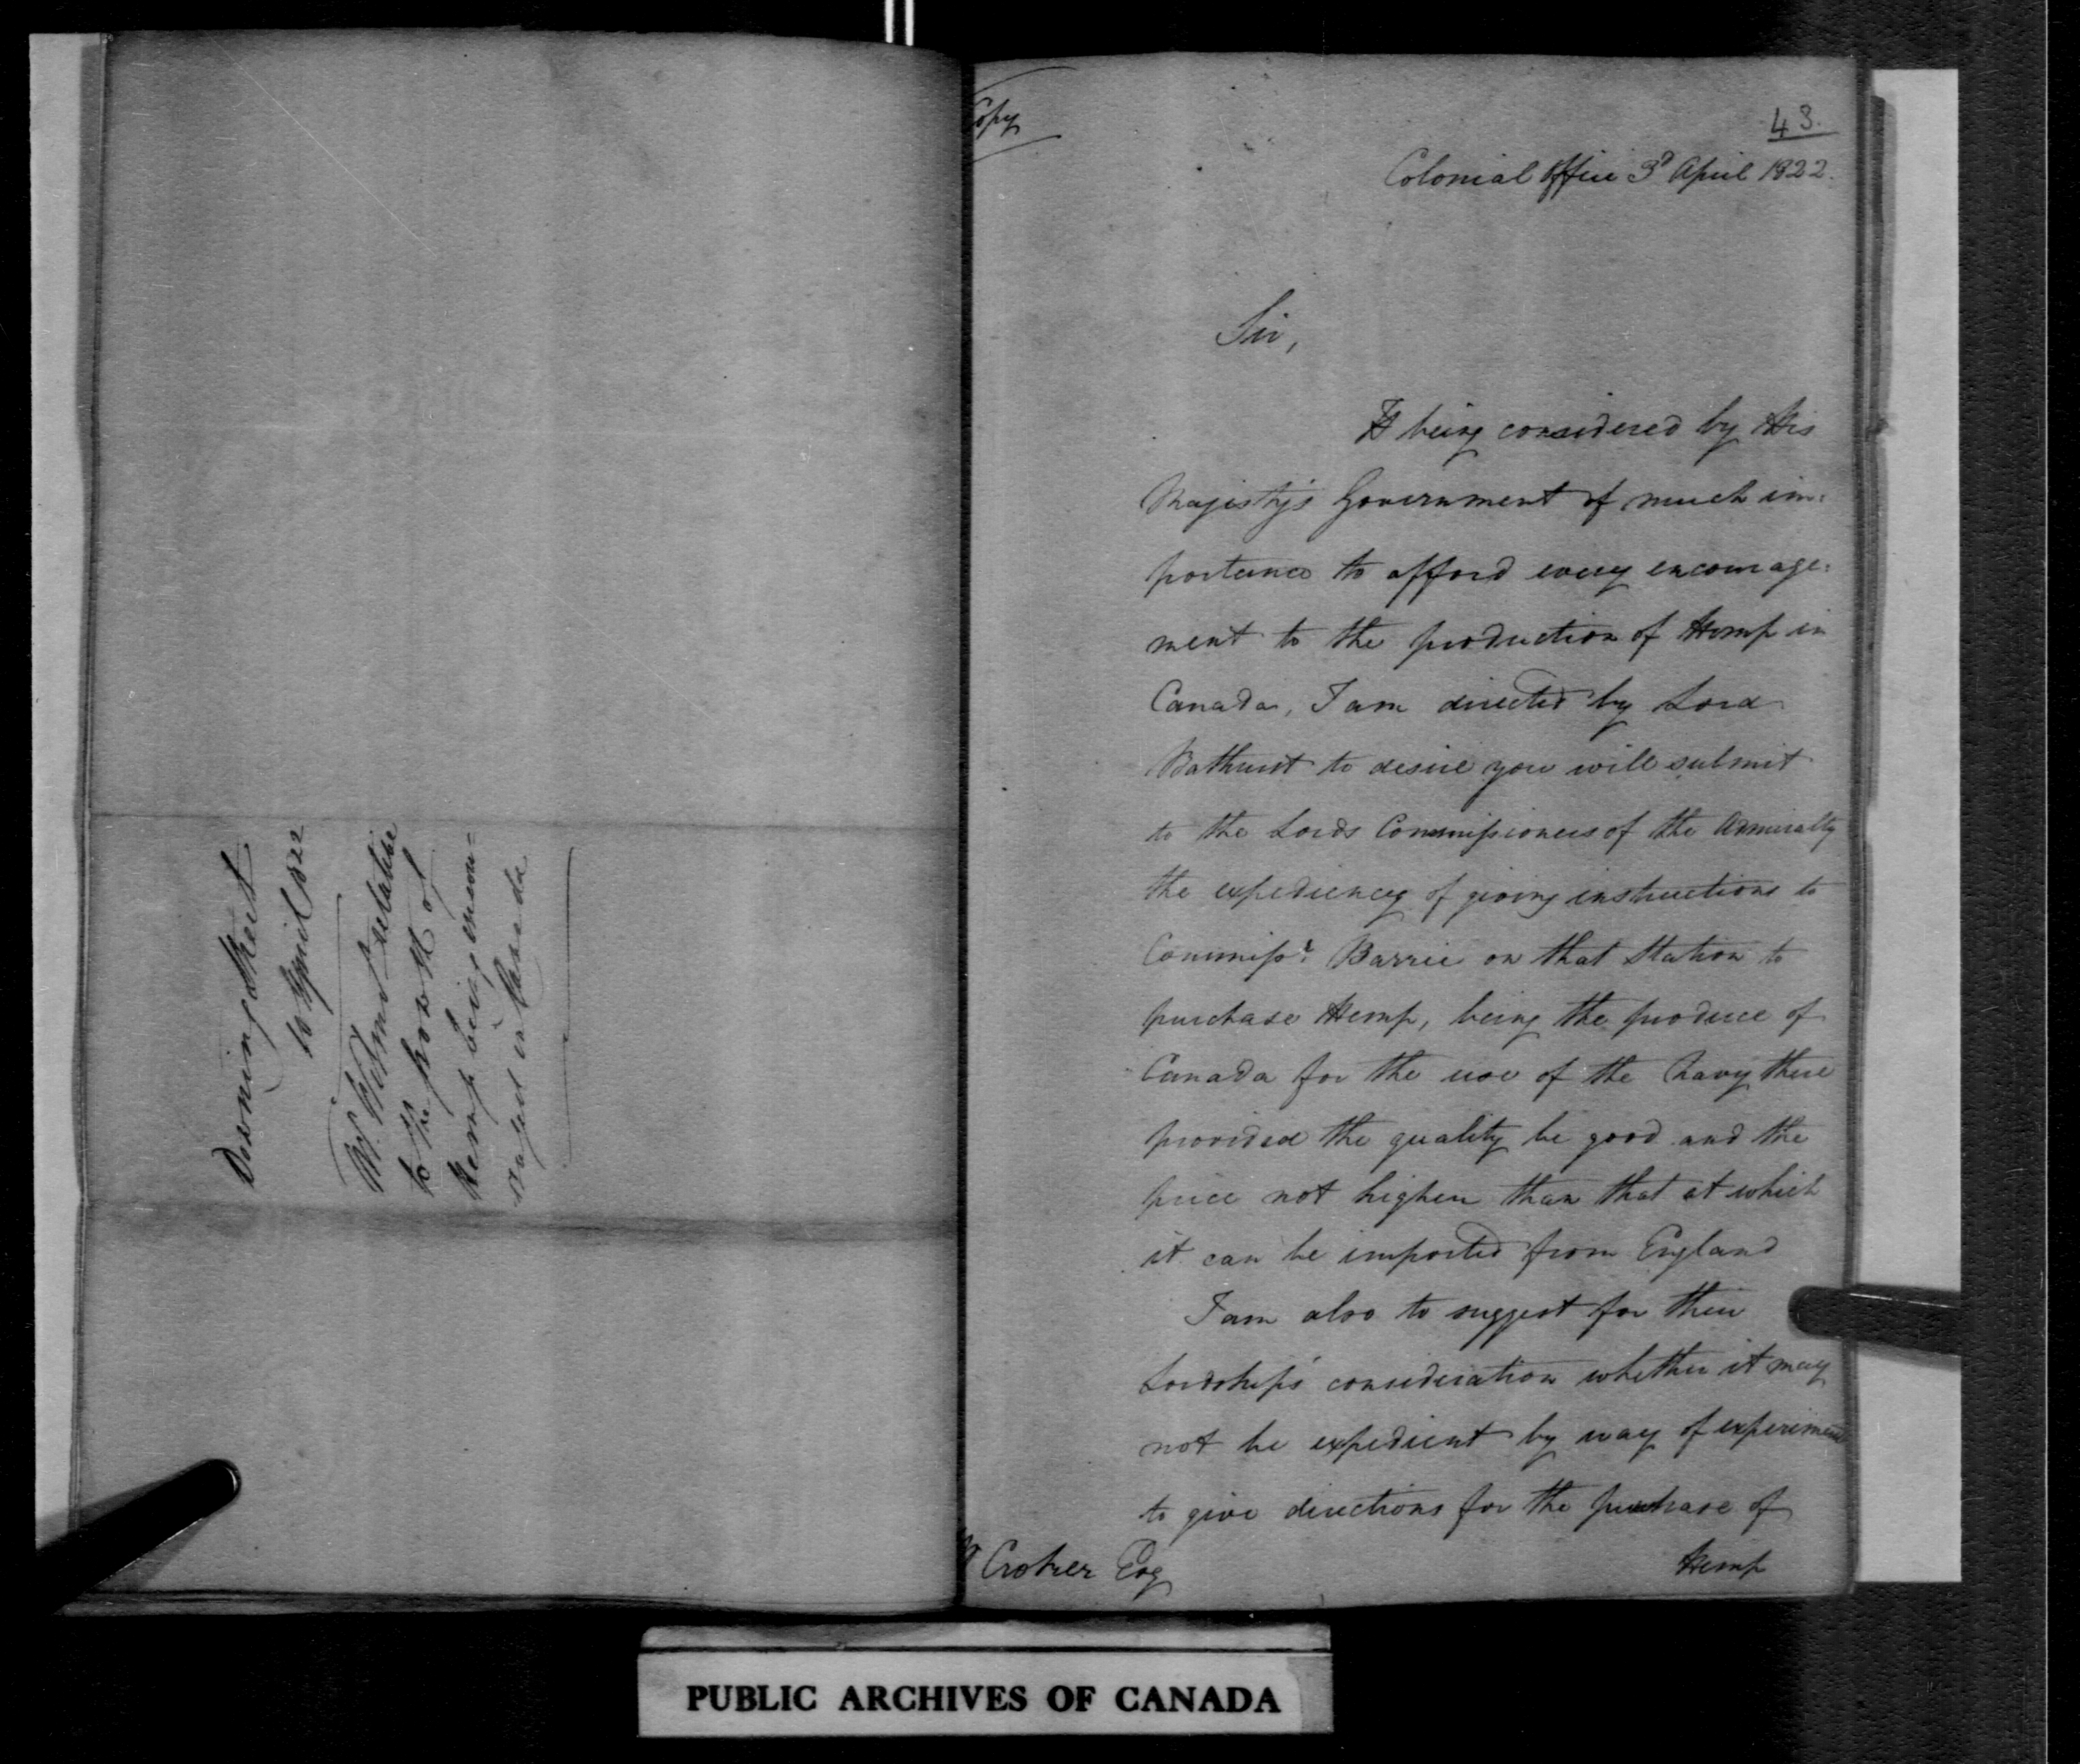 Downing Street
10 April 1822
Mr. Wilmot relative
to the growth of
Hemp being encou-
raged in Canada
Copy
43.
Colonial Office 3d April 1822.
Sir,
It being considered by His
Majesty's Government of much im:
portance to afford every encourage:
ment to the production of Hemp in
Canada, I am directed by Lord
Bathurst to desire you will submit
to the Lords Commissioners of the Admiralty
the expediency of giving instructions to
Commissr. Barrie on that Station to
purchase Hemp, being the produce of
Canada for the use of the Navy there
provided the quality be good and the
price not higher than that at which
it can be imported from England
I am also to suggest for their
Lordships' consideration whether it may
not be expedient by way of experiment
to give directions for the purchase of
Hemp
Croker Esq
PUBLIC ARCHIVES OF CANADA